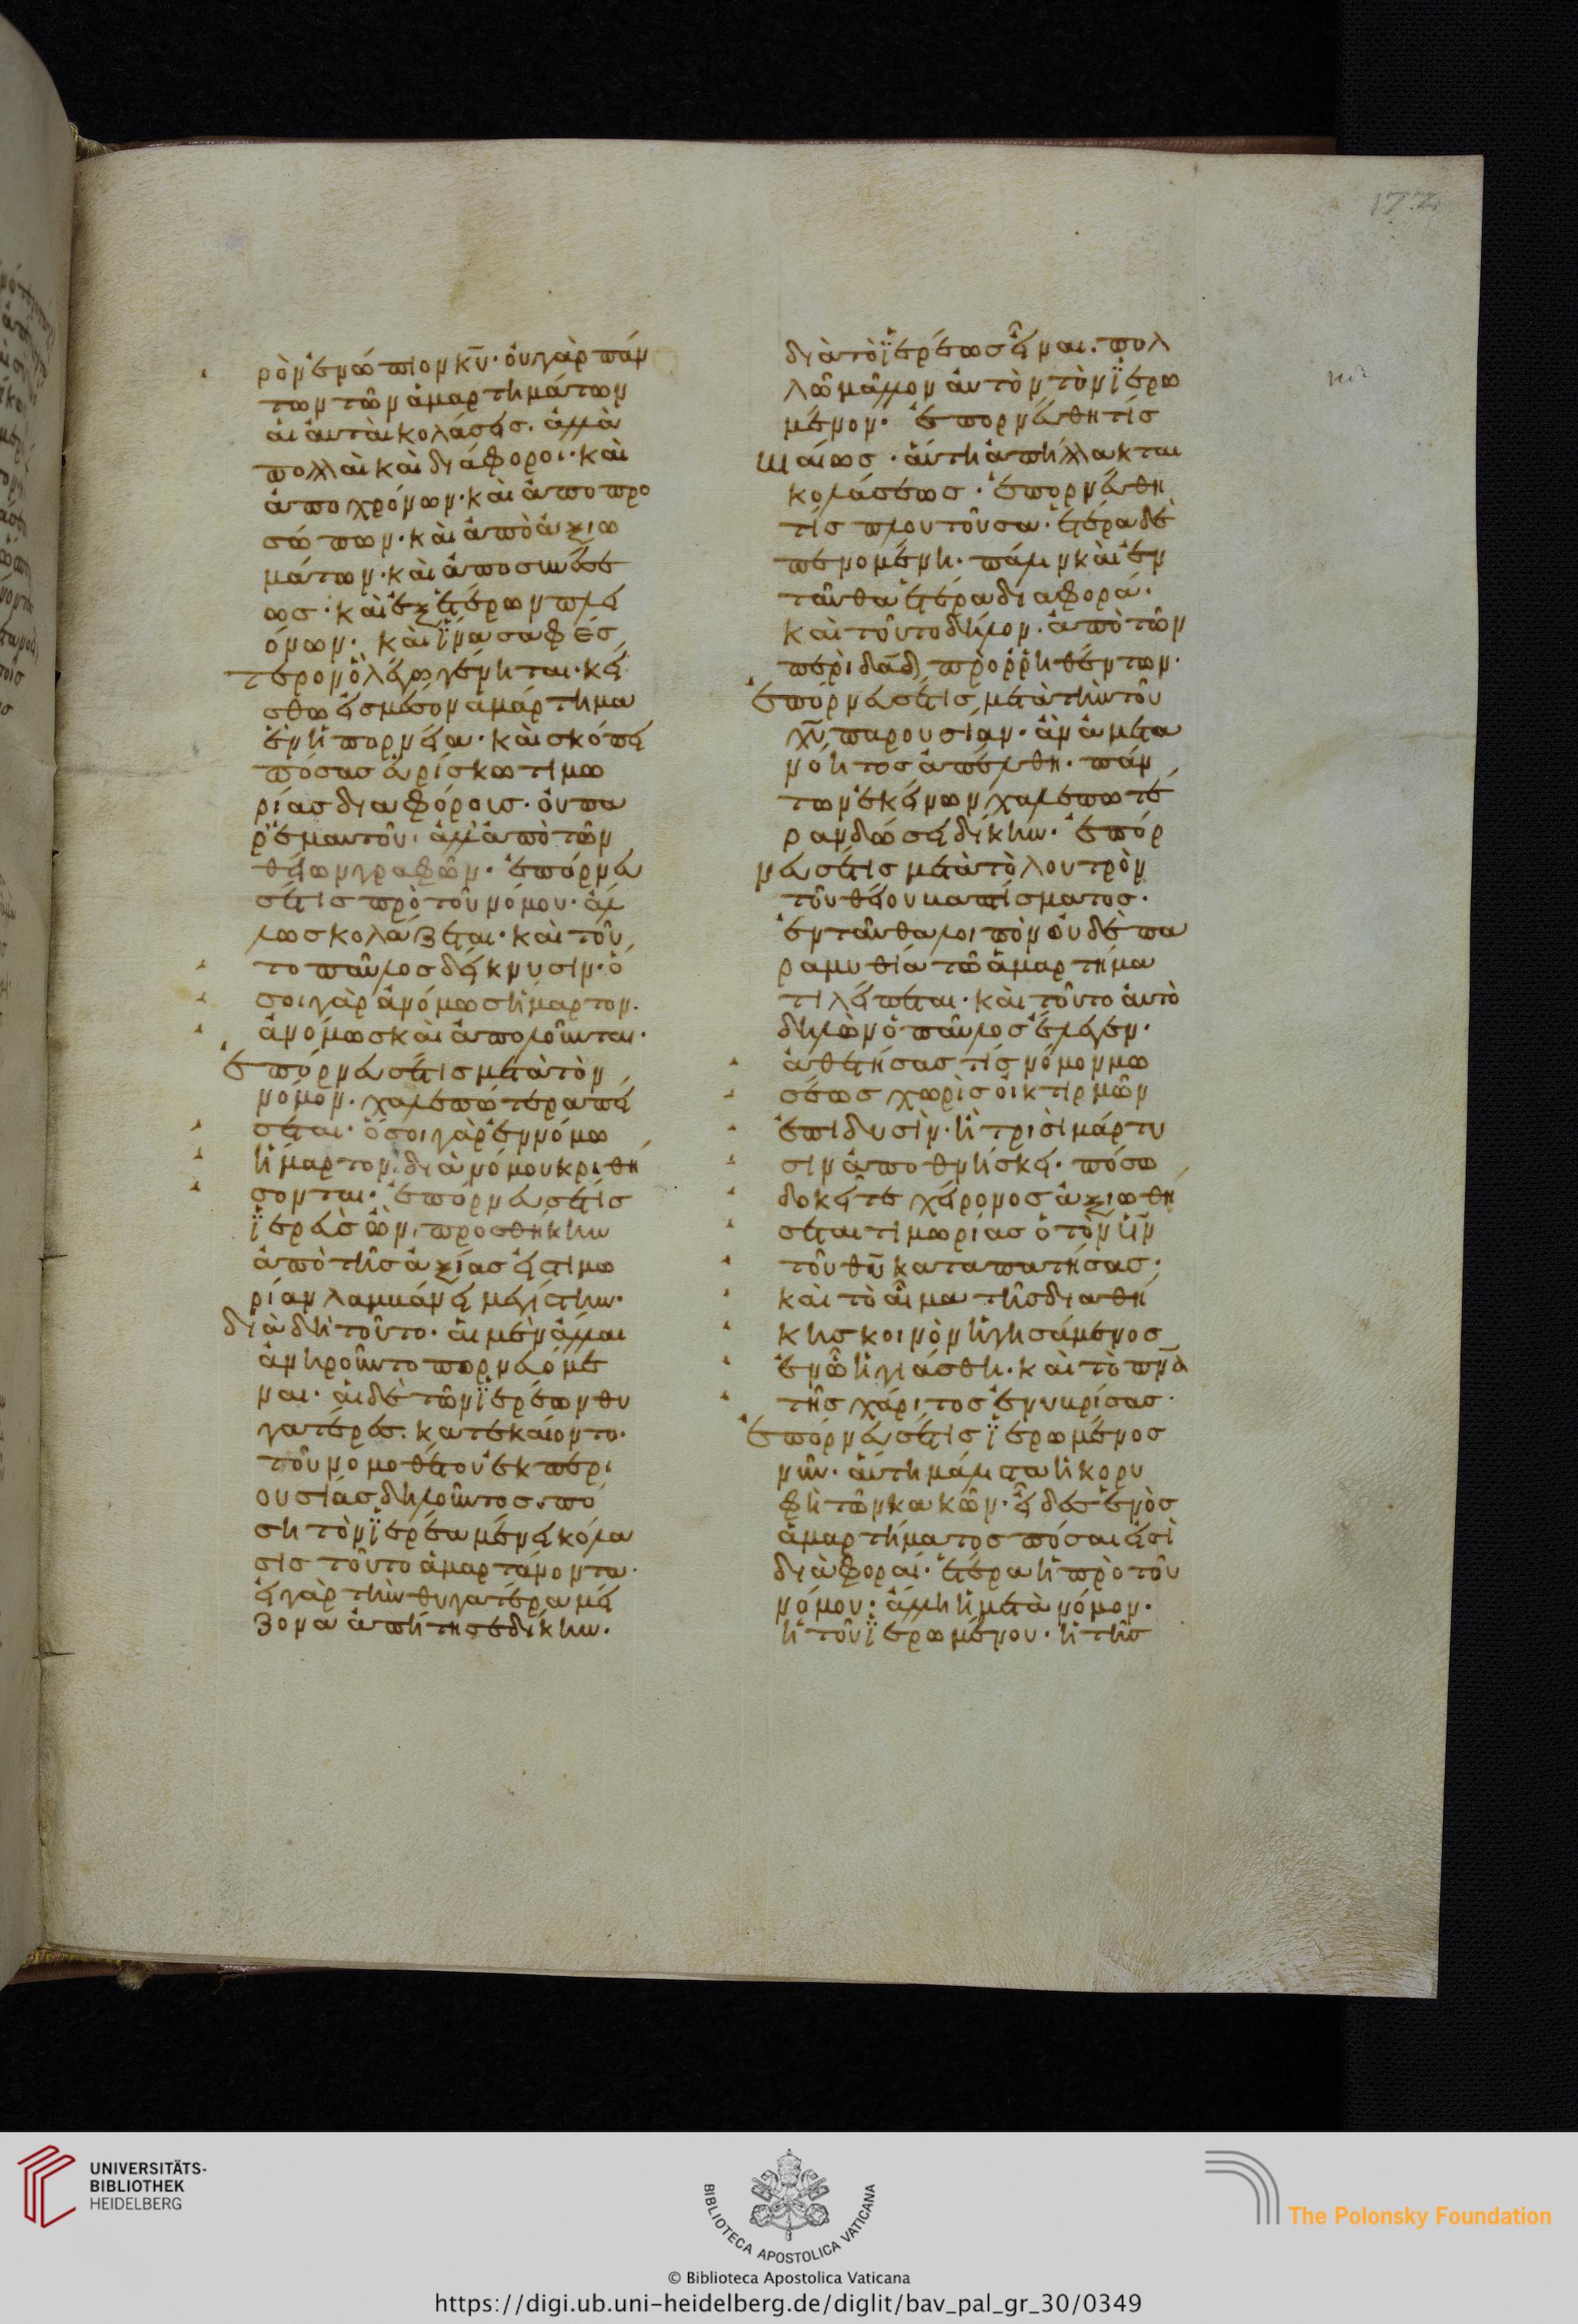 172
ρὸν ἐνώπιον κῡ· οὐ γὰρ πάν
των τῶν ἁμαρτημάτων
αἱ αὐταὶ κολάσεις· ἀλλὰ
πολλαὶ καὶ διάφοροι· καὶ
ἀπο χρόνων· καὶ ἀπο προ
σώπων· καὶ ἀπὸ ἀξιω
μάτων· καὶ ἀπο συνέσε
ως· καὶ ἐξ ἑτέρων πλει
όνων· καὶ ἵνα σαφέσ
τερον ὃ λέγω γένηται· κεί
σθω εἰς μέσον ἁμάρτημα
ἓν ἡ πορνεία· καὶ σκόπει
πόσας εὑρίσκω τιμω
ρίας διαφόροις· οὐ πα
ρ' ἐμαυτοῦ· ἀλλ' ἀπὸ τῶν
θείων γραφῶν· ἐπόρνευ
σέ τις πρὸ τοῦ νόμου· ἄλ
λως κολάζεται· καὶ τοῦ
το παῦλος δείκνυσιν· ὅ
σοι γὰρ ἀνόμως ἥμαρτον·
ἀνόμως καὶ ἀπολοῦνται·
ἐπόρνευσέ τις μετὰ τὸν
νόμον· χαλεπώτερα πεί
σεται· ὅσοι γὰρ ἐν νόμω
ἥμαρτον· διὰ νόμου κριθή
σονται· ἐπόρνευσέ τίς
ἱερεὺς ὢν, προσθήκην
ἀπὸ τῆς ἀξίας εἰς τιμω
ρίαν λαμβάνει μεγίστην·
διὰ δὴ τοῦτο· αἱ μὲν ἄλλαι
ἀνηροῦντο πορνευόμε
ναι· αἱ δὲ τῶν ἱερέων θυ
γατέρες· κατεκαίοντο·
τοῦ νομοθέτου ἐκ περι
ουσίας δηλοῦντος· πό
ση τὸν ἱερέα μένει κόλα
σις τοῦτο ἁμαρτάνοντα·
εἰ γὰρ τὴν θυγατέρα μεί
ζονα ἀπήτησε δίκην·
διὰ τὸ ἱερέως εἶναι· πολ
λῶ μᾶλλον αὐτὸν τὸν ἱερω
μένον· ἐπορνεύθη τίς
βιαίως· αὕτη ἀπήλλακται
κολάσεως· ἐπορνεύθη
τίς πλουτοῦσα· ἑτέρα δὲ
πενομένη· πάλιν καὶ ἐν
ταῦθα ἑτέρα διαφορά·
καὶ τοῦτο δῆλον· ἀπὸ τῶν
περὶ δᾱδ προρρηθέντων·
ἐπόρνευσέ τις μετὰ τὴν τοῦ
χῡ παρουσίαν· ἂν ἀμύη
νόητος ἀπέλθη· πάν
των ἐκείνων χαλεπωτέ
ραν δώσει δίκην· ἐπόρ
νευσέ τις μετὰ τὸ λουτρὸν
τοῦ θείου βαπτίσματος·
ἐνταῦθα λοιπὸν οὐδὲ πα
ραμυθία τῶ ἁμαρτήμα
τι λείπεται· καὶ τοῦτο αὐτὸ
δηλῶν ὁ παῦλος ἔλεγεν·
ἀθετήσας τίς νόμον μω
σέως χωρὶς οἰκτιρμῶν
ἐπὶ δυσὶν· ἢ τρισὶ μάρτυ
σιν ἀποθνήσκει· πόσω
δοκεῖτε χείρονος ἀξιωθή
σεται τιμωρίας ὁ τὸν ῡν
τοῦ θῡ καταπατήσας·
καὶ τὸ αἷμα τῆς διαθή
κης κοινὸν ἡγησάμενος
ἐν ῶ ἡγιάσθη· καὶ τὸ πνᾱ
τῆς χάριτος ἐνυβρίσας·
ἐπόρνευσέ τις ἱερωμένος
νῦν· αὕτη μάλιστα ἡ κορυ
φὴ τῶν κακῶν· εἶδες ἑνὸς
ἁμαρτήματος πόσαι εἰσὶ
διαφοραί· ἑτέρα ἡ πρὸ τοῦ
νόμου· ἄλλη ἡ μετὰ νόμον·
ἡ τοῦ ἱερωμένου· ἡ τῆς
UNIVERSITÄTS-
BIBLIOTHEK
HEIDELBERG
BIBLIOTECA APOSTOLICA VATICANA
© Biblioteca Apostolica Vaticana
The Polonsky Foundation
https://digi.ub.uni-heidelberg.de/diglit/bav_pal_gr_30/0349